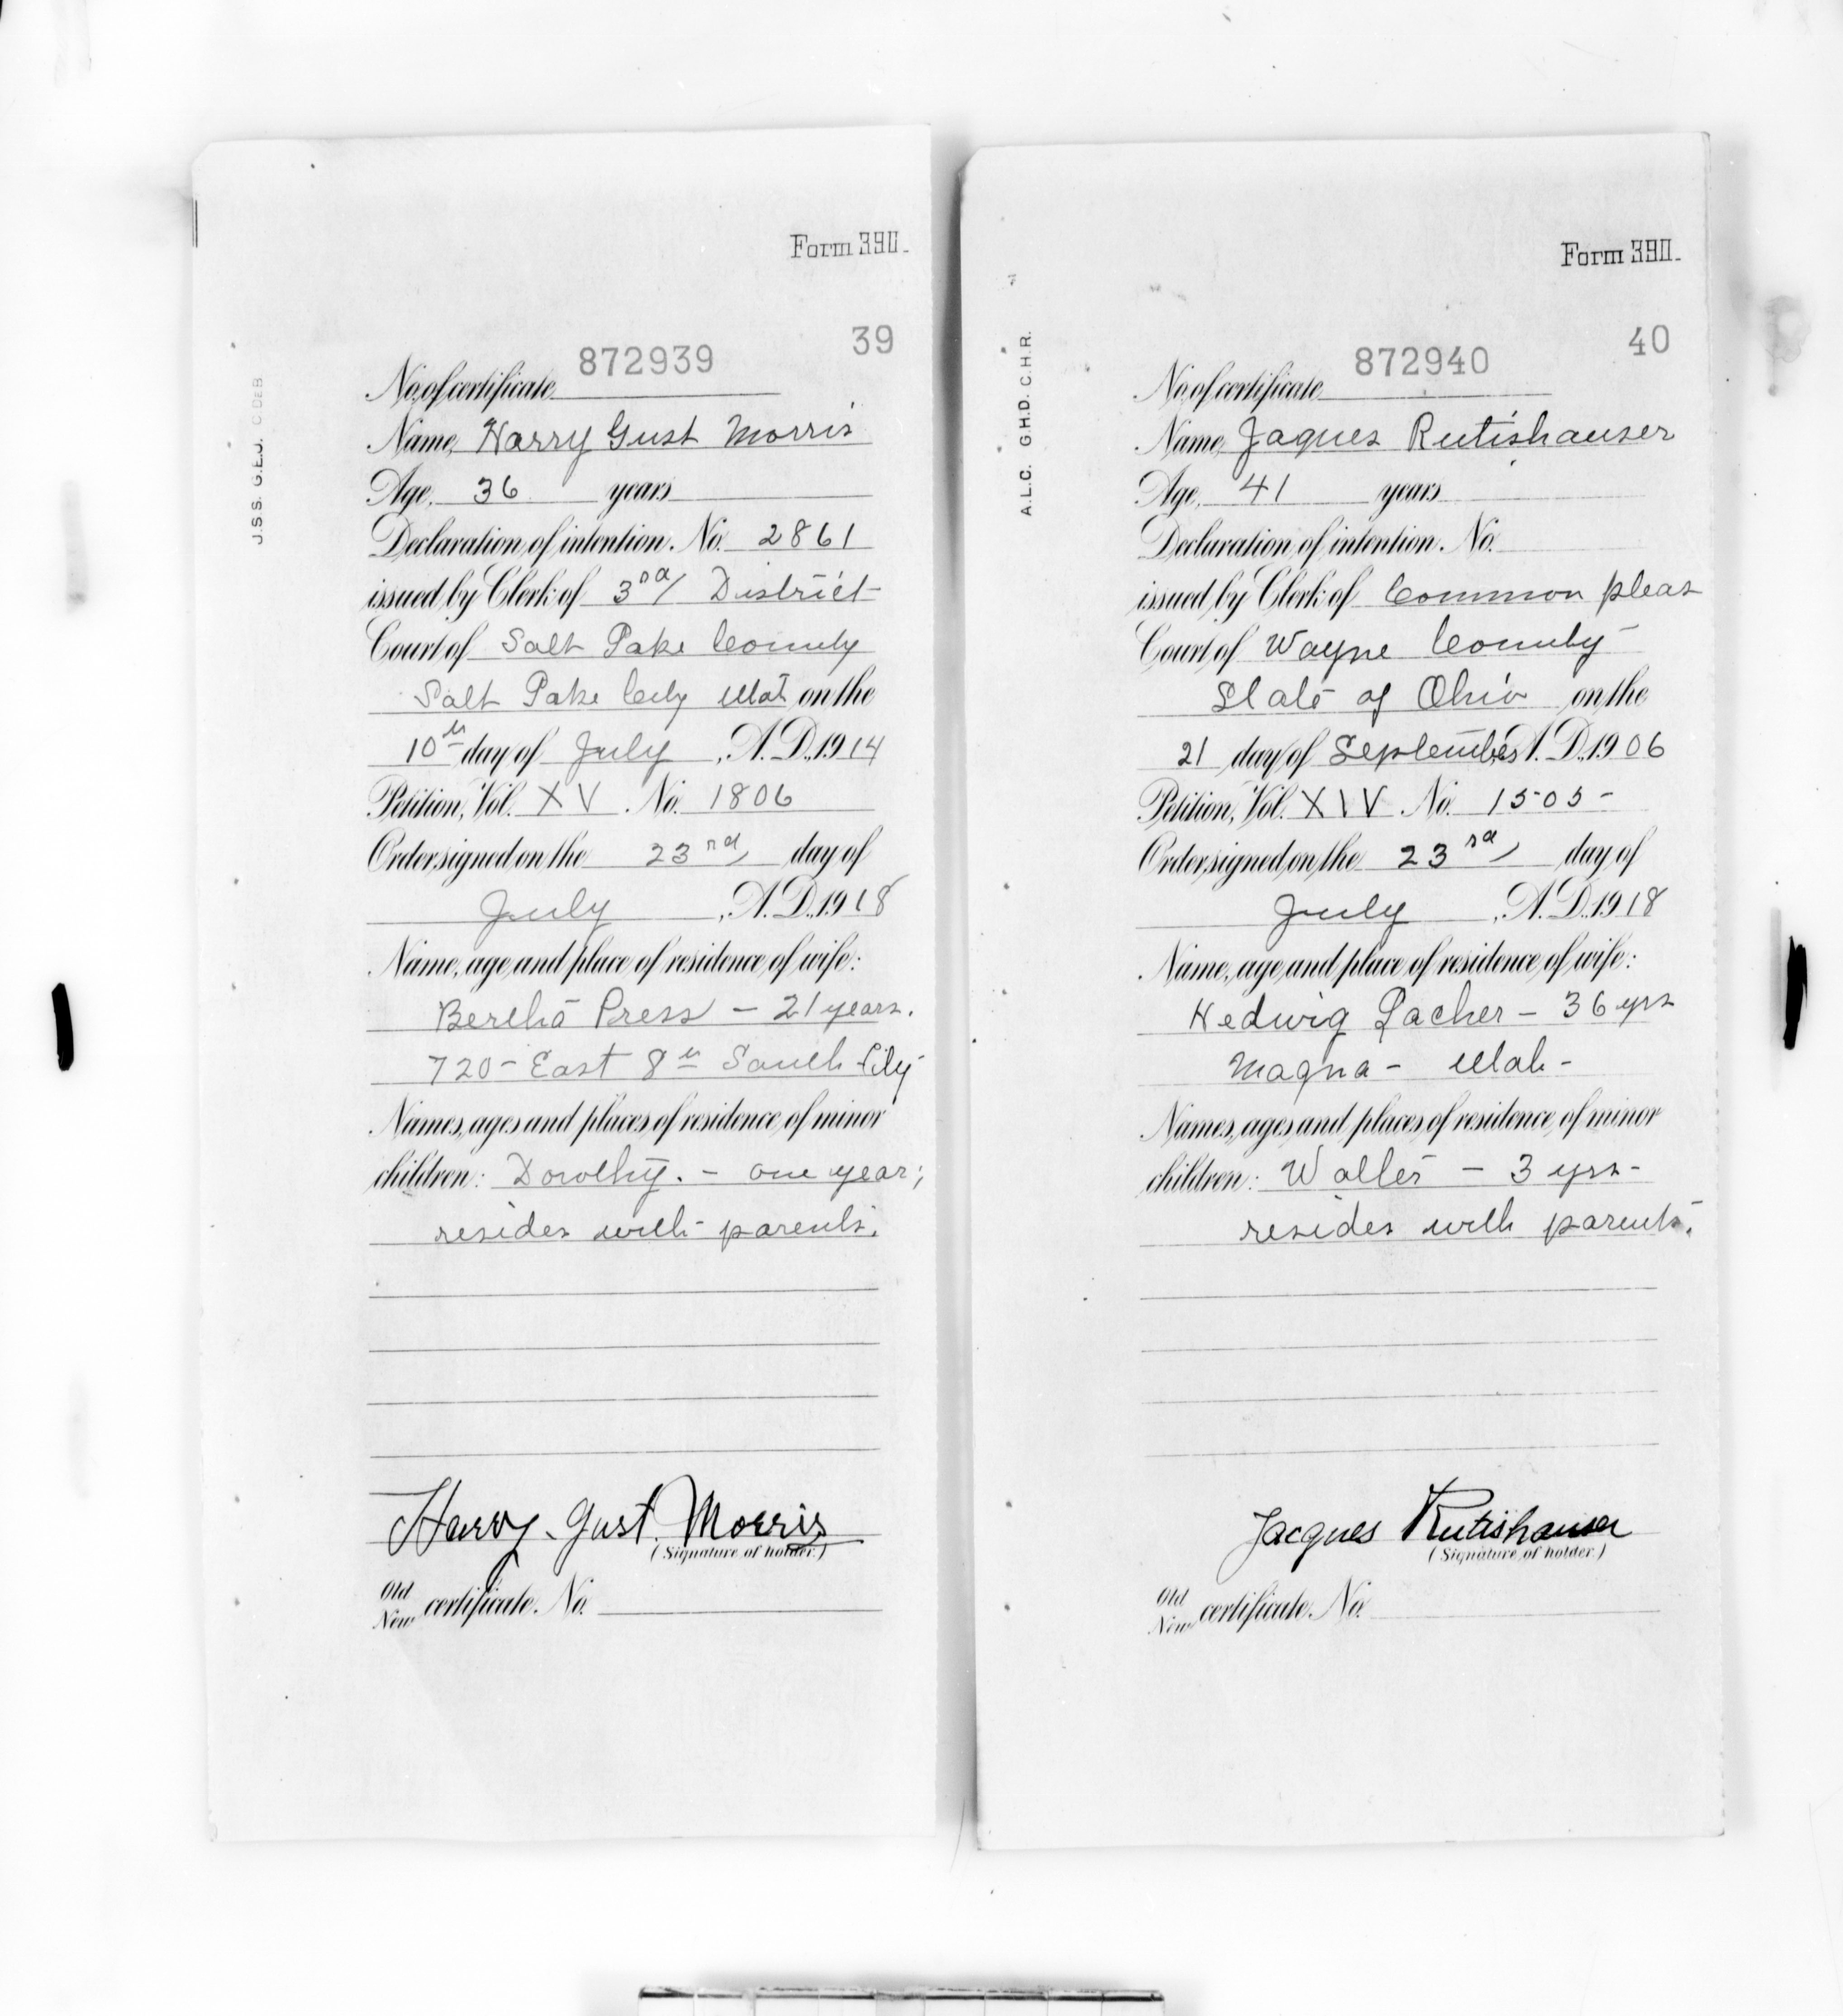 Form 390.
39
872939
No. of certificate
Name, Harry Gust Morris
Age, 36 years
Declaration, of intention. No. 2861
issued, by Clerk of 3rd District
Court of Salt Lake County
Salt Lake City Utah on the
10th day of July, A. D. 1914
Petition, Vol. XV. No. 1806
Order, signed on the 23rd day of
July, A. D. 1918
Name, age, and place of residence, of wife:
Bertha Press - 21 years.
720 - East 8th South City
Names, ages and places of residence, of minor
children: Dorothy. - one year;
resides with parents.
Harry Gust Morris
(Signature of holder.)
Old
New certificate. No.
J.S.S. G.E.J.
Form 390.
40
872940
No. of certificate
Name, Jaques Rutishauser
Age, 41 years
Declaration, of intention. No.
issued, by Clerk of Common pleas
Court, of Wayne County
State of Ohio on the
21 day of September A. D. 1906
Petition, Vol. XIV No. 1505 -
Order, signed, on, the 23rd day of
July, A. D. 1918
Name, age, and place of residence, of wife:
Hedwig Lacher - 36 yrs
Magna - Utah -
Names, ages and places, of residence, of minor
children: Walter - 3 yrs -
resides with parents.
Jacques Rutishauser
(Signature, of holder.)
Old
New certificate. No.
A.L.C. G.H.D. C.H.R.